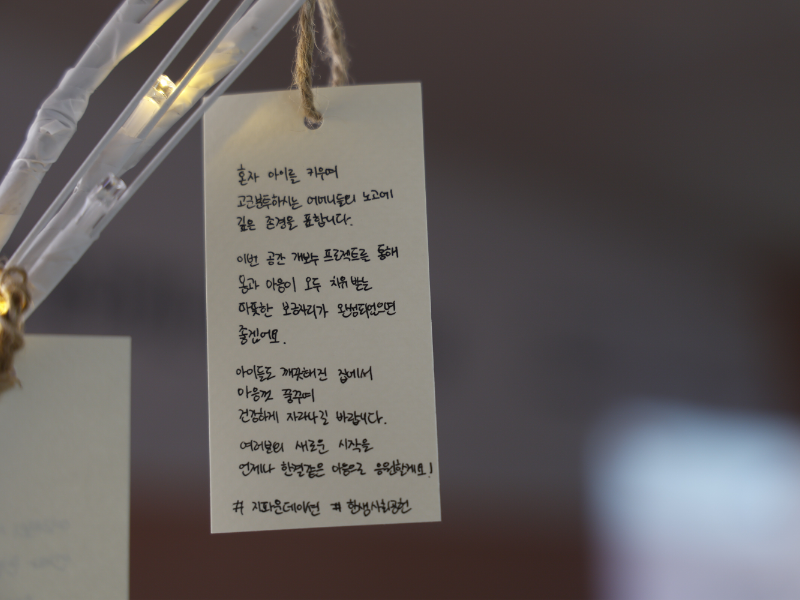 혼자 아이를 키우며
고군분투하시는 어머니들의 노고에
깊은 존경을 표합니다.
이번 공간 개보수 프로젝트를 통해
몸과 마음이 모두 치유 받는
따뜻한 보금자리가 완성되었으면
좋겠어요.
아이들도 깨끗해진 집에서
마음껏 꿈꾸며
건강하게 자라나길 바랍니다.
여러분의 새로운 시작을
언제나 한결같은 마음으로 응원할게요!
# 지파운데이션 # 한샘사회공헌